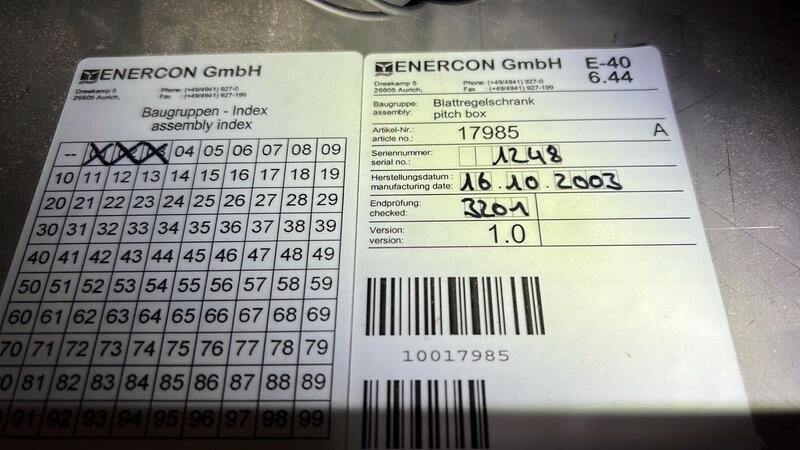 ENERCON GmbH
Dreekamp 5
26605 Aurich,
Phone: (+49/4941) 927-0
Fax : (+49/4941) 927-199
Baugruppen - Index
assembly index
-- 04 05 06 07 08 09
10 11 12 13 14 15 16 17 18 19
20 21 22 23 24 25 26 27 28 29
30 31 32 33 34 35 36 37 38 39
40 41 42 43 44 45 46 47 48 49
50 51 52 53 54 55 56 57 58 59
60 61 62 63 64 65 66 67 68 69
70 71 72 73 74 75 76 77 78 79
80 81 82 83 84 85 86 87 88 89
91 92 93 94 95 96 97 98 99
ENERCON GmbH
E-40
6.44
Dreekamp 5
26605 Aurich,
Phone: (+49/4941) 927-0
Fax : (+49/4941) 927-199
Baugruppe: Blattregelschrank
assembly: pitch box
Artikel-Nr.:
article no.: 17985 A
Seriennummer:
serial no.: 1248
Herstellungsdatum :
manufacturing date: 16.10.2003
Endprüfung:
checked: 3201
Version:
version: 1.0
10017985